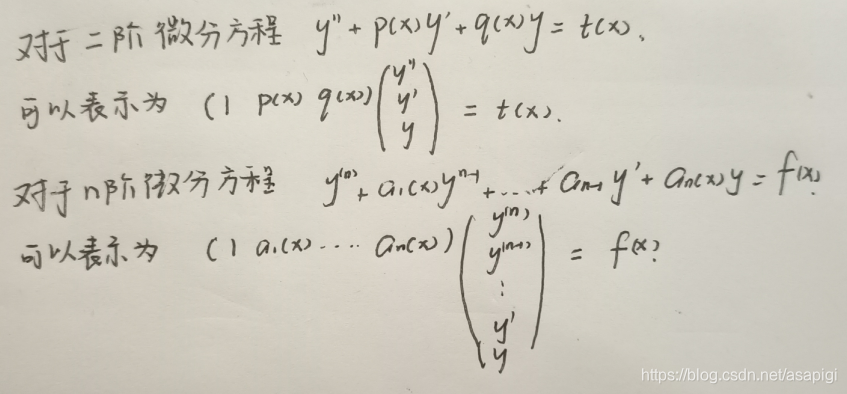 对于二阶微分方程 y''+p(x)y'+q(x)y=t(x).
可以表示为 (1 p(x) q(x)) (y'' y' y) = t(x).
对于n阶微分方程 y⁽ⁿ⁾+a₁(x)yⁿ⁻¹+...+aₙ₋₁y'+aₙ(x)y=f(x).
可以表示为 (1 a₁(x)....aₙ(x)) (y⁽ⁿ⁾ y⁽ⁿ⁻¹⁾ ⋮ y' y) = f(x).
https://blog.csdn.net/asapigi